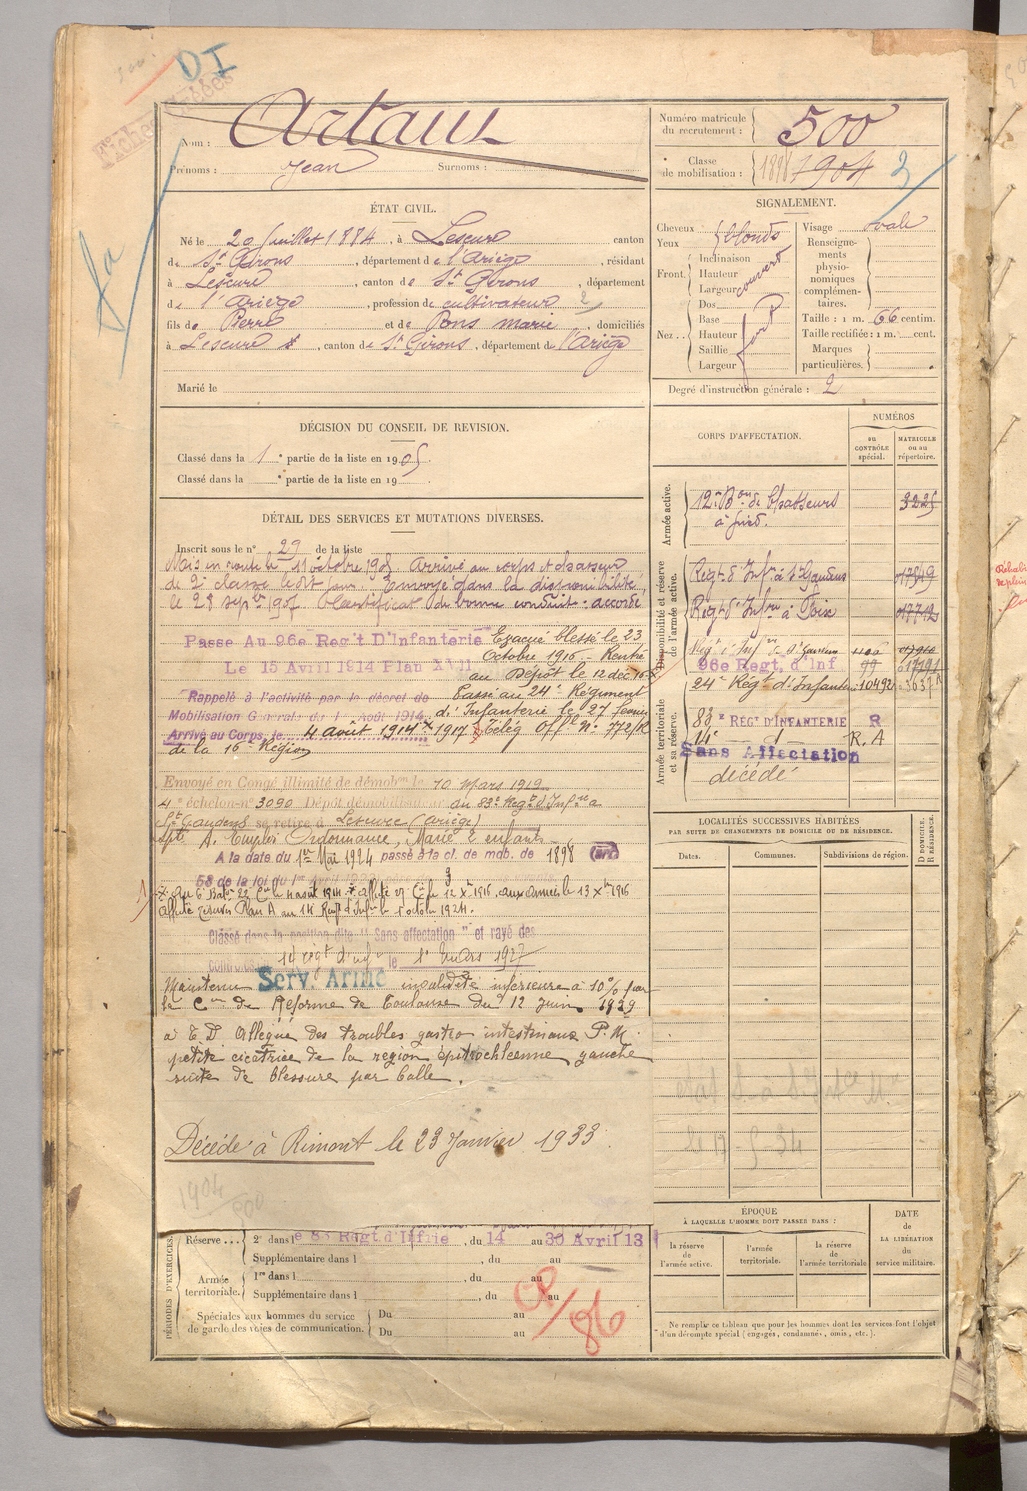 DI
Nom : Artaud
Prénoms : Jean Surnoms :
Numéro matricule du recrutement : 500
Classe de mobilisation : 1898 1904 3
ÉTAT CIVIL.
Né le 20 Juillet 1884, à Lescure canton
de St Girons, département de l'Ariège, résidant
à Lescure, canton de St Girons, département
de l'Ariège, profession de cultivateur 2
fils de Pierre et de Pons Marie, domiciliés
à Lescure, canton de St Girons, département de l'Ariège
Marié le
SIGNALEMENT.
Cheveux blonds
Yeux
Front. Inclinaison
Hauteur
Largeur couvert
Nez. Dos
Base
Hauteur
Saillie
Largeur
Visage ovale
Renseignements physionomiques complémentaires.
Taille : 1 m. 66 centim.
Taille rectifiée : 1 m. cent.
Marques particulières.
Degré d'instruction générale : 2
DÉCISION DU CONSEIL DE REVISION.
Classé dans la 1e partie de la liste en 1905.
Classé dans la e partie de la liste en 19
CORPS D'AFFECTATION.
NUMÉROS
au CONTRÔLE spécial.
MATRICULE ou au répertoire.
Armée active.
12e Bon de Chasseurs à pied. 3225
Disponibilité et réserve de l'armée active.
Regt d'Infie à St Gaudens 01789
Regt d'Infie à Foix 017712
96e Regt. d'Inf 99
24e Régt d'Infanterie 10492
Armée territoriale et sa réserve.
83e RÉGT D'INFANTERIE R
14e d R.A
Sans Affectation
décédé
DÉTAIL DES SERVICES ET MUTATIONS DIVERSES.
Inscrit sous le n° 29 de la liste
Mis en route le 11 octobre 1905 Arrivé au corps et chasseur
de 2e classe ledit jour. Envoyé dans la disponibilité
le 28 sepbre 1907 Certificat de bonne conduite : accordé
Passe Au 96e Reg't D'Infanterie
Le 15 Avril 1914 Plan XVII
Evacué blessé le 23
Octobre 1916 – Rentré
au Dépôt le 12 déc. 16
Passé au 24e Régiment
d'Infanterie le 27 février
1917 Télég Offl N° 772/R
Rappelé à l'activité par le décret de
Mobilisation Générale du 1er Août 1914
Arrivé au Corps, le 4 aout 1914
de la 16e Région
Envoyé en Congé illimité de démobon le 10 Mars 1919
4e échelon n° 3090 Dépôt démobilisateur du 83e Regt d'Infie à
St Gaudens se retire à Lescure (Ariège)
A. Emploi Ordonnance, Marié 2 enfants
A la date du 1er Mai 1924 passé à la cl. de mob. de 1898
58 de la loi du 1er Avril
Affecté réserve Plan A au 14e Regt d'Infie le 1 octobre 1924.
Classé dans la position dite "Sans affectation" et rayé des
contrôles 14 régt d'inf le 1er Mars 1927
Maintenu Serv. Armé invalidité inférieure à 10% par
la Con de Réforme de Toulouse du 12 Juin 1929
à T D Allègue des troubles gastro intestinaux P. M.
petite cicatrice de la région épitrochléenne gauche
suite de blessure par balle.
Décédé à Rimont le 23 Janvier 1933
1904
500
LOCALITÉS SUCCESSIVES HABITÉES
PAR SUITE DE CHANGEMENTS DE DOMICILE OU DE RÉSIDENCE.
Dates. Communes. Subdivisions de région. D DOMICILE. R RÉSIDENCE.
ÉPOQUE
À LAQUELLE L'HOMME DOIT PASSER DANS :
la réserve de l'armée active.
l'armée territoriale.
la réserve de l'armée territoriale
DATE de LA LIBÉRATION du service militaire.
Ne remplir ce tableau que pour les hommes dont les services font l'objet
d'un décompte spécial (engagés, condamnés, omis, etc.).
PÉRIODES D'EXERCICES.
Réserve... 2e dans l e 83 Régt d'Infrie, du 14 au 30 Avril 13
Supplémentaire dans l , du au
Armée territoriale. 1re dans l , du au
Supplémentaire dans l , du au
Spéciales aux hommes du service de garde des voies de communication. Du au
Du au
CP/86